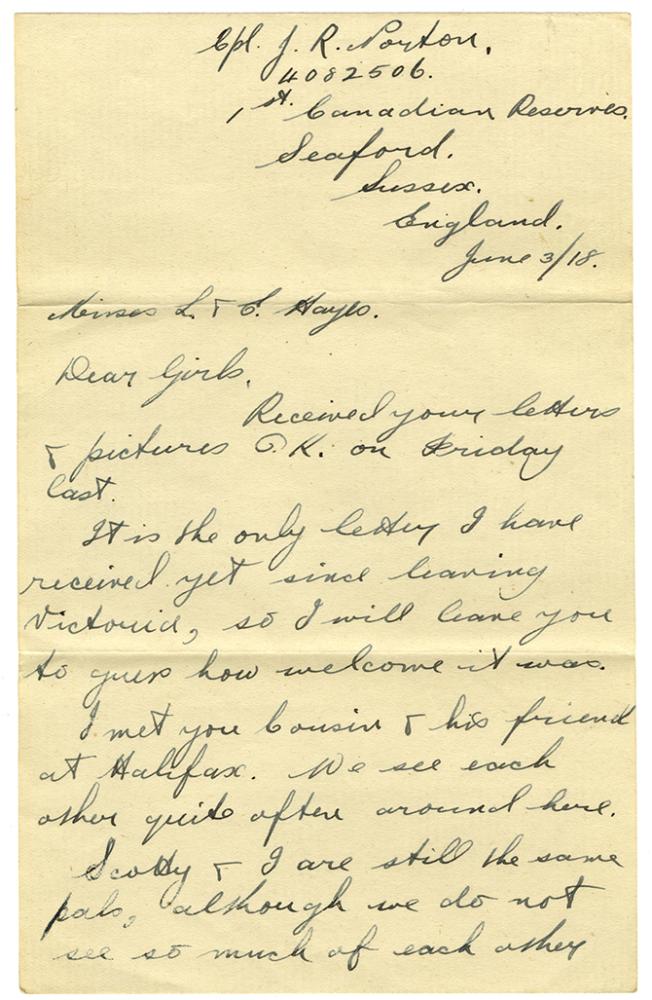 Cpl. J. R. Norton.
4082506.
1st. Canadian Reserves.
Seaford.
Sussex.
England.
June 3/18.
Misses L. & E. Hayes.
Dear Girls,
Received your letters
& pictures O.K. on Friday
last.
It is the only letter I have
received yet since leaving
Victoria, so I will leave you
to guess how welcome it was.
I met you Cousin & his friend
at Halifax. We see each
other quite often around here.
Scotty & I are still the same
pals, although we do not
see so much of each other